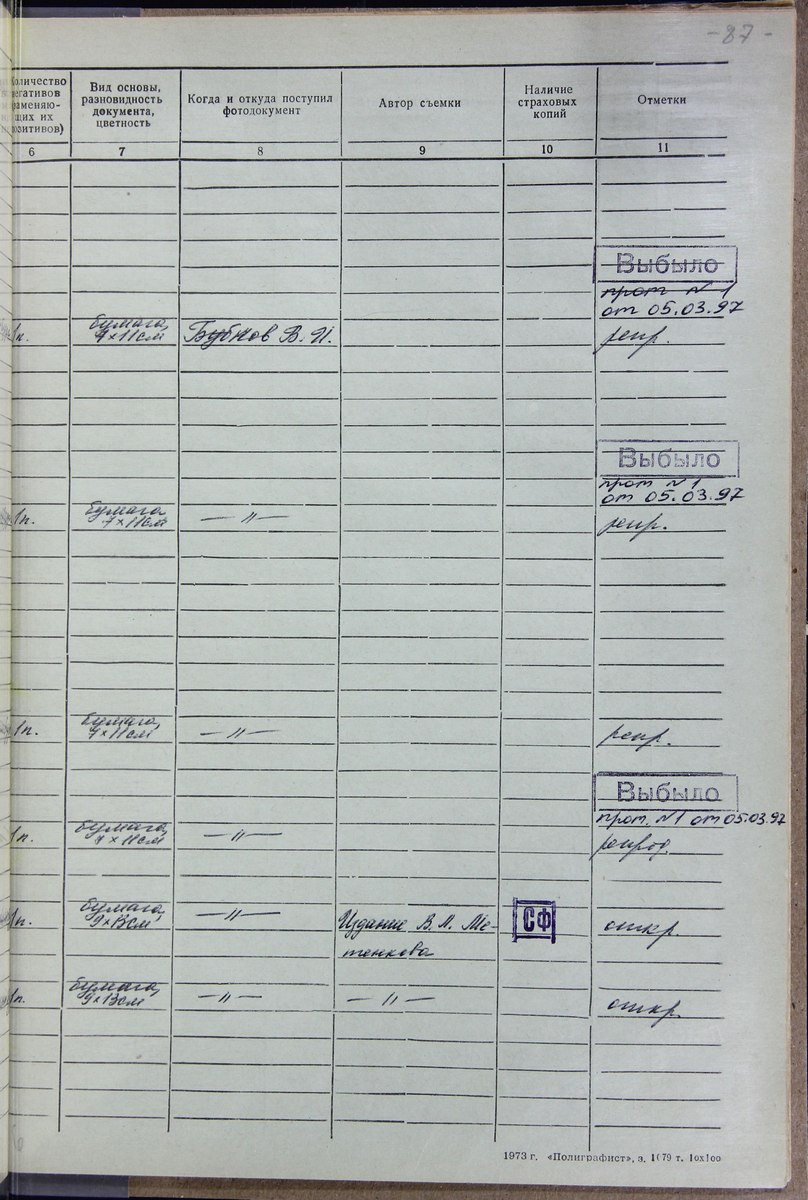 - 87 -
Количество
негативов
заменяю-
щих их
позитивов)
Вид основы,
разновидность
документа,
цветность
Когда и откуда поступил
фотодокумент
Автор съемки
Наличие
страховых
копий
Отметки
6 7 8 9 10 11
Выбыло
прот №1
от 05.03.97
1п. бумага, Бубнов В. И. репр.
7×11см
Выбыло
прот №1
от 05.03.97
1п. бумага — 〃 — репр.
7×11см
1п. бумага, — 〃 — репр.
7×11см
Выбыло
прот. №1 от 05.03.97
1п. бумага, — 〃 — репрод.
7×11см
1п. бумага, — 〃 — Издание В. Л. Ме- СФ откр.
9×13см
тенкова
1п. бумага, — 〃 — — 〃 — откр.
9×13см
1973 г. «Полиграфист», з. 1079 т.